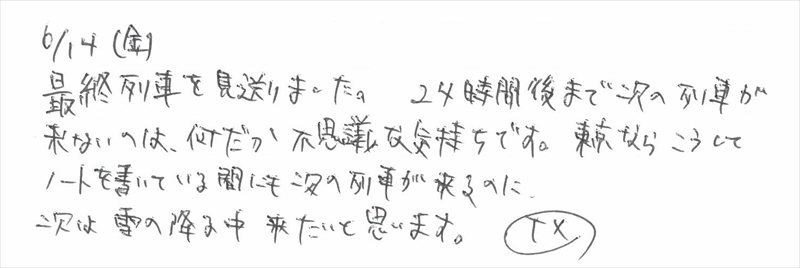 6/14 (金)
最終列車を見送りました。 24時間後まで次の列車が
来ないのは、何だか不思議な気持ちです。東京なら こうして
ノートを書いている間にも次の列車が来るのに、
次は雪の降る中 来たいと思います。 TX